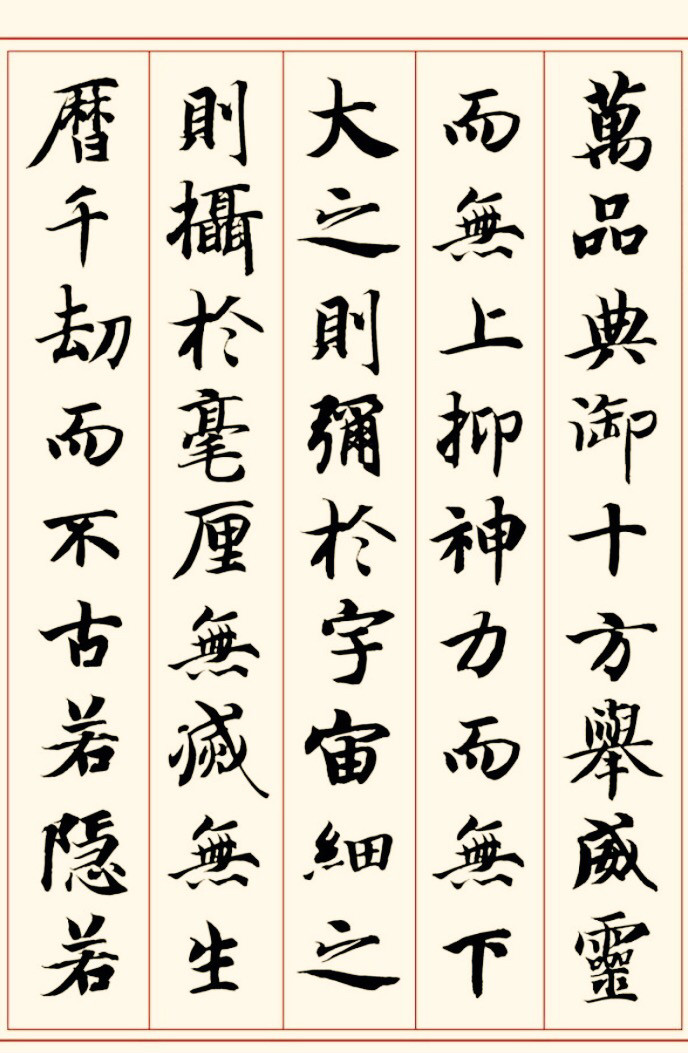 萬品典御十方舉威靈
而無上抑神力而無下
大之則彌於宇宙細之
則攝於毫厘無滅無生
曆千劫而不古若隱若